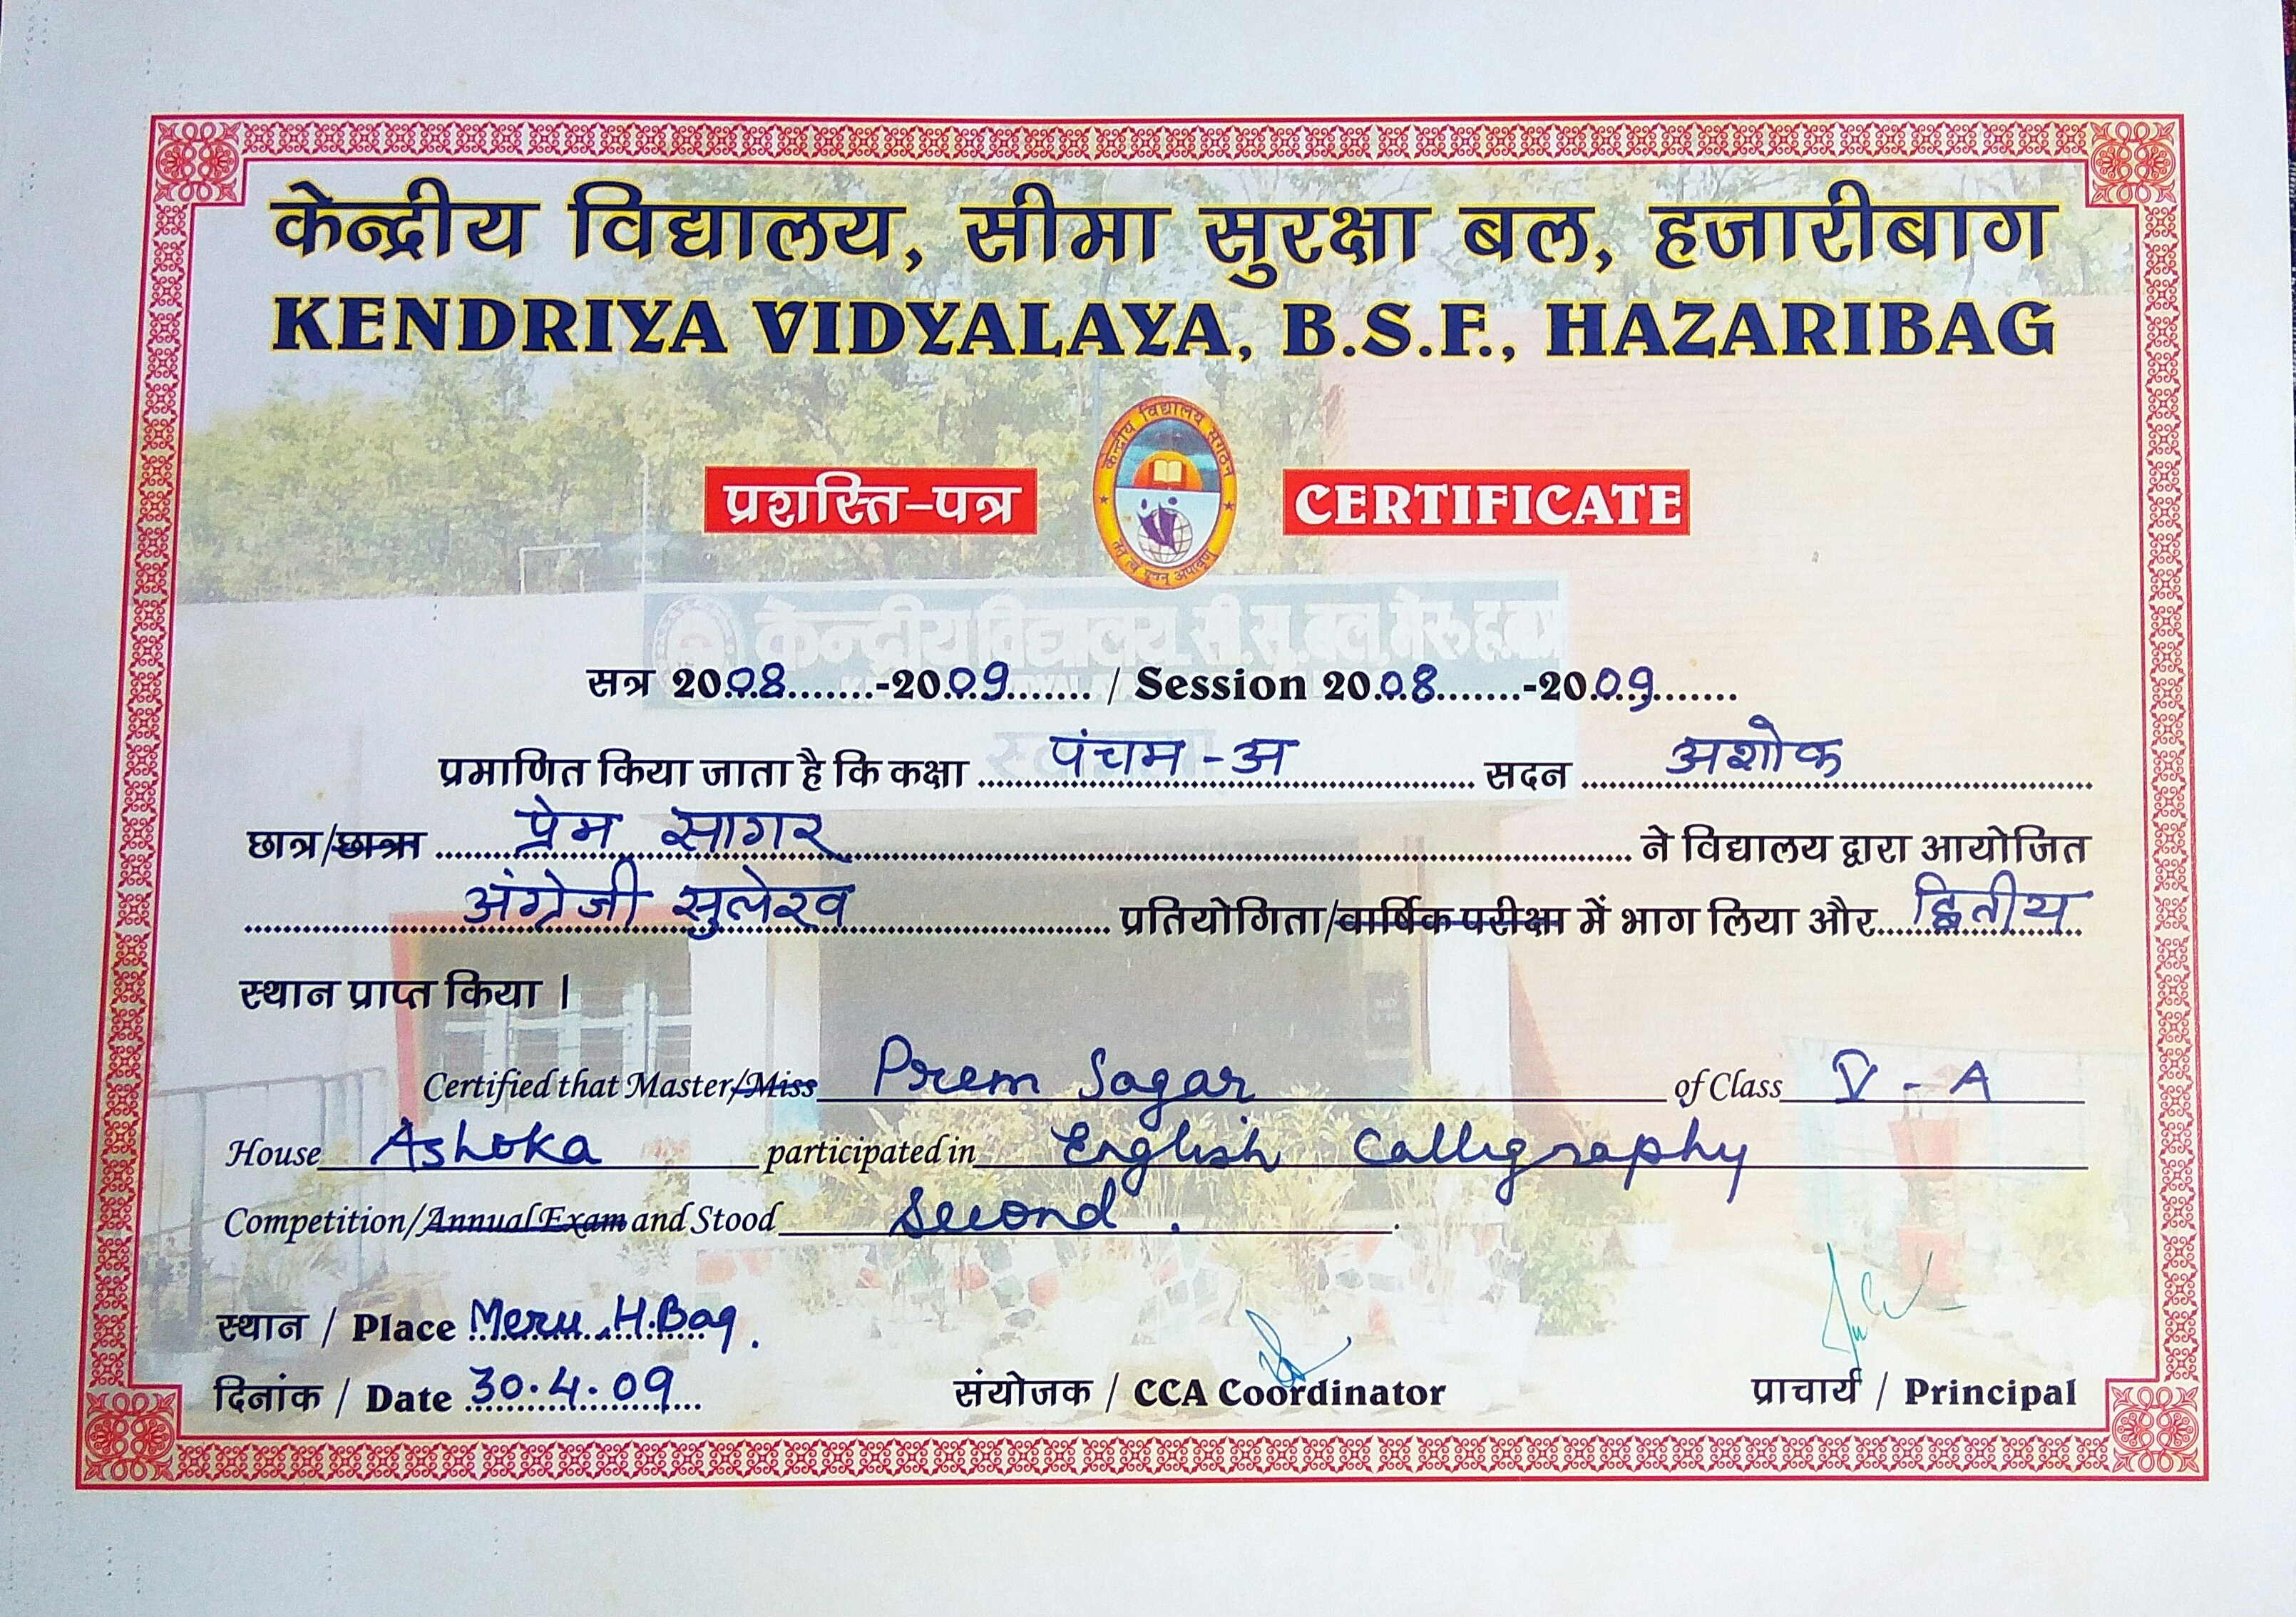 केन्द्रीय विद्यालय, सीमा सुरक्षा बल, हजारीबाग
KENDRIYA VIDYALAYA, B.S.F., HAZARIBAG
केन्द्रीय विद्यालय संगठन
प्रशस्ति-पत्र CERTIFICATE
तत् त्वं पूषन् अपावृणु
केन्द्रीय विद्यालय सी.सु.बल, मेरू ह.बाग
सत्र 2008.......-2009....... / Session 2008.......-2009.......
प्रमाणित किया जाता है कि कक्षा पंचम - अ सदन अशोक
छात्र/छात्रा प्रेम सागर ने विद्यालय द्वारा आयोजित
अंग्रेजी सुलेख प्रतियोगिता/वार्षिक परीक्षा में भाग लिया और द्वितीय
स्थान प्राप्त किया ।
Certified that Master/Miss Prem Sagar of Class V - A
House Ashoka participated in English Calligraphy
Competition/Annual Exam and Stood Second .
स्थान / Place Meru H.Bag.
दिनांक / Date 30.4.09 संयोजक / CCA Coordinator प्राचार्य / Principal